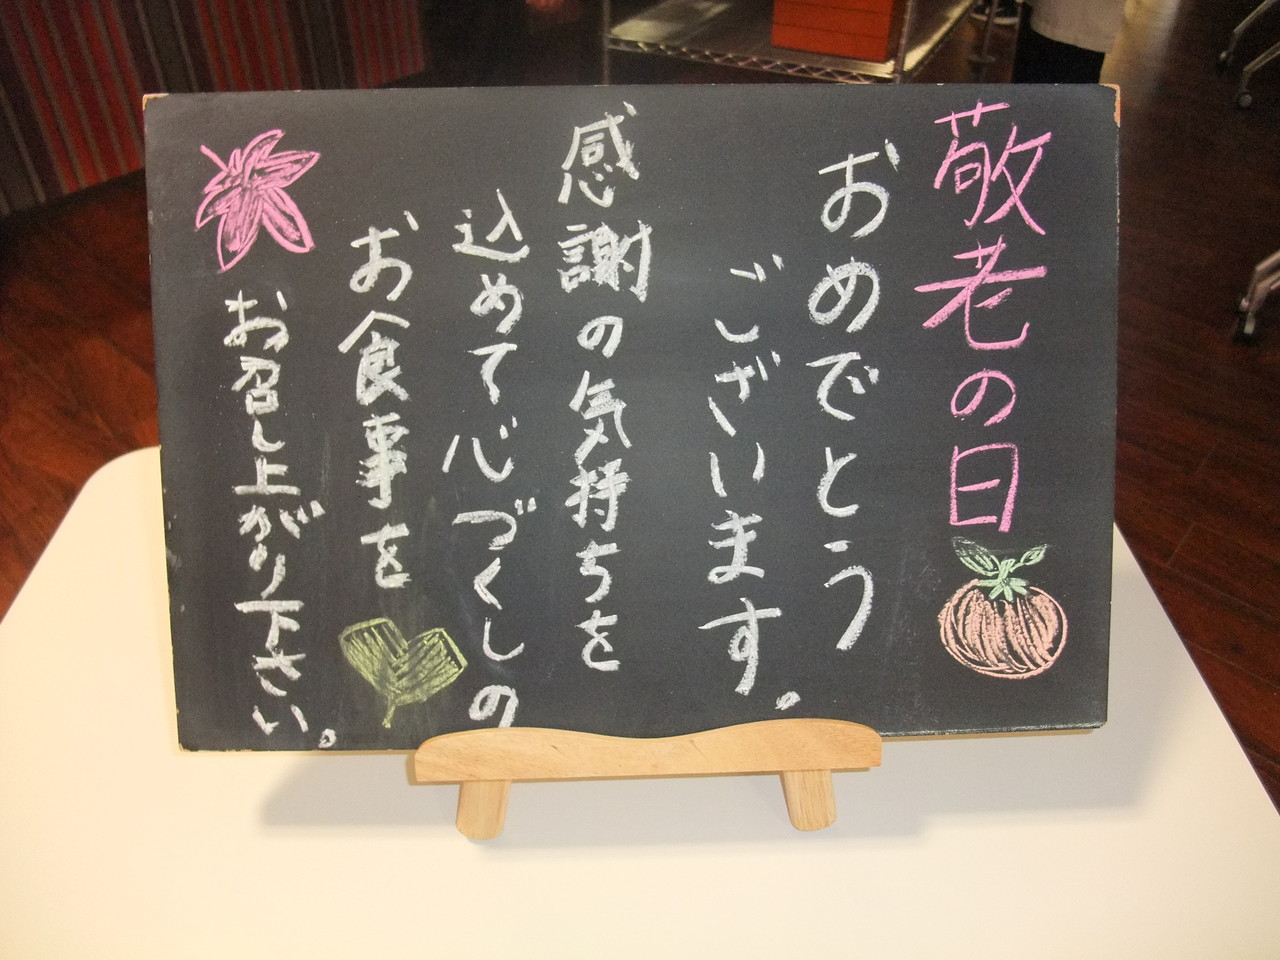 敬老の日
おめでとう
ございます。
感謝の気持ちを
込めて心づくしの
お食事を
お召し上がり下さい。